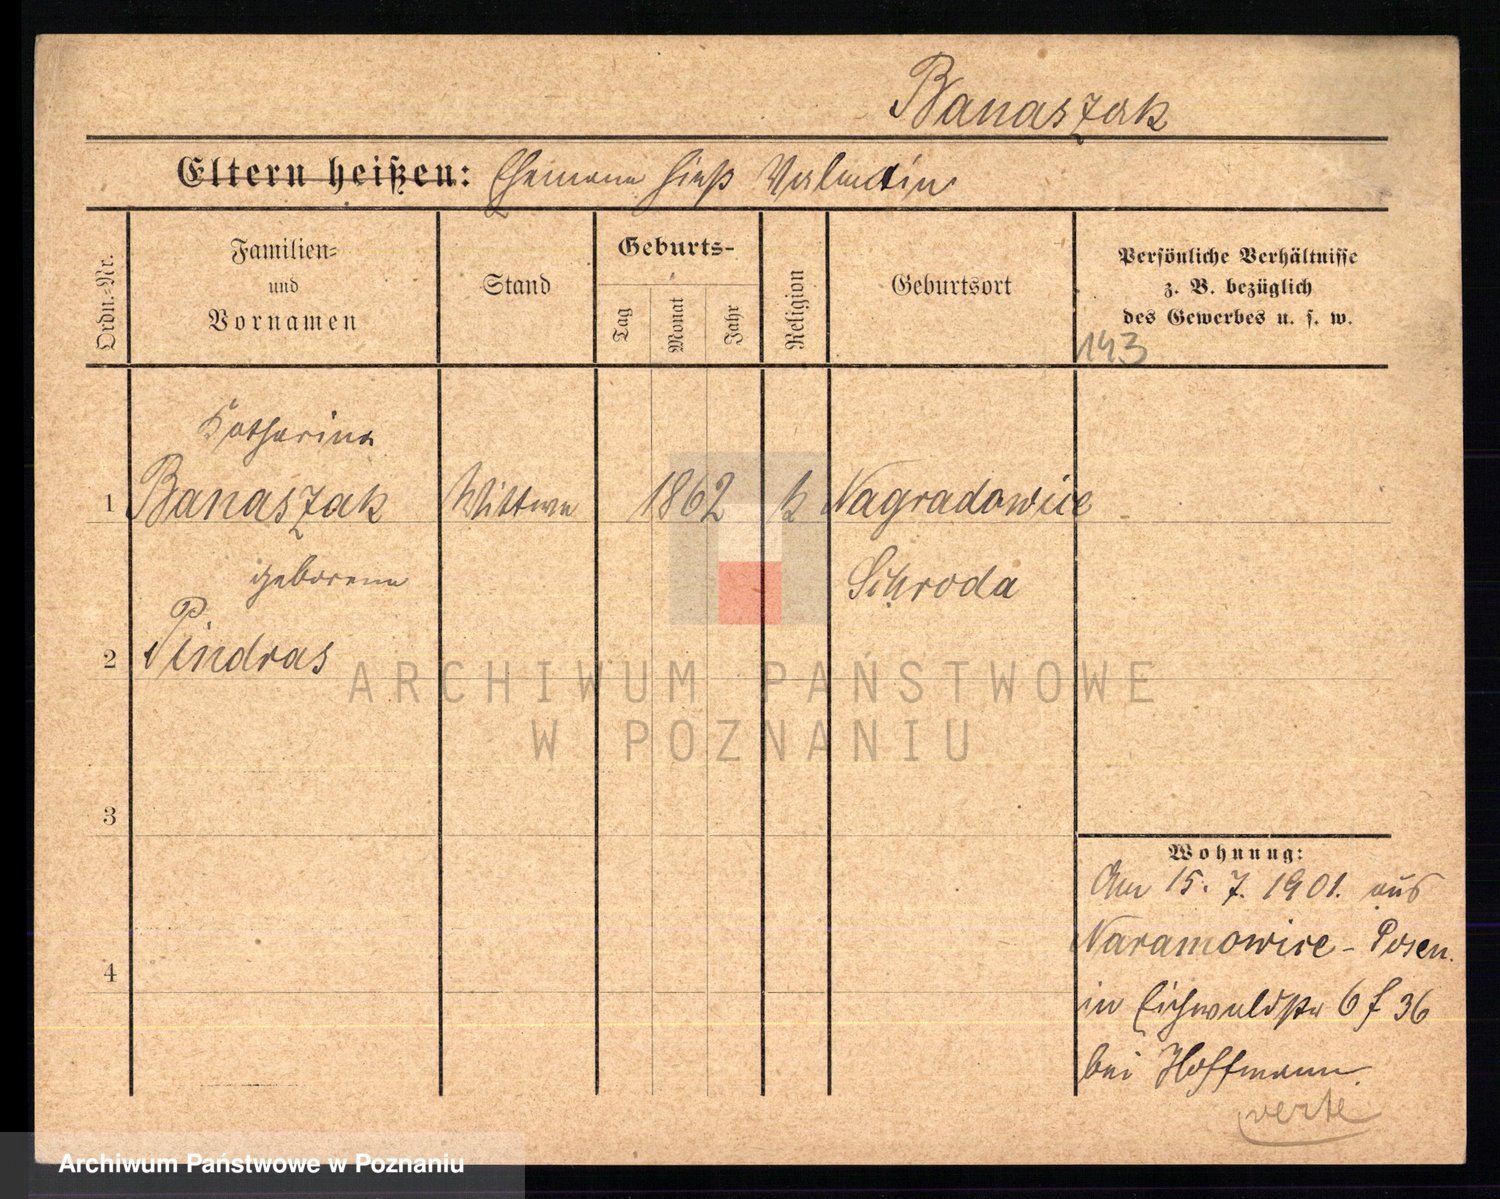 Banaszak
Eltern heißen: Ehemann hieß Valentin
Ordn.-Nr.
Familien-
und
Vornamen
Stand
Geburts-
Tag
Monat
Jahr
Religion
Geburtsort
Persönliche Verhältnisse
z. B. bezüglich
des Gewerbes u. s. w.
143
Katharina
1 Banaszak Wittwe 1862 k Nagradowice
geborene Schroda
2 Pindras
3
4
Wohnung:
Am 15. 7. 1901. aus
Naramowice - Posen.
in Eichwaldstr 6 f 36
bei Hoffmann.
verte
ARCHIWUM PAŃSTWOWE
W POZNANIU
Archiwum Państwowe w Poznaniu